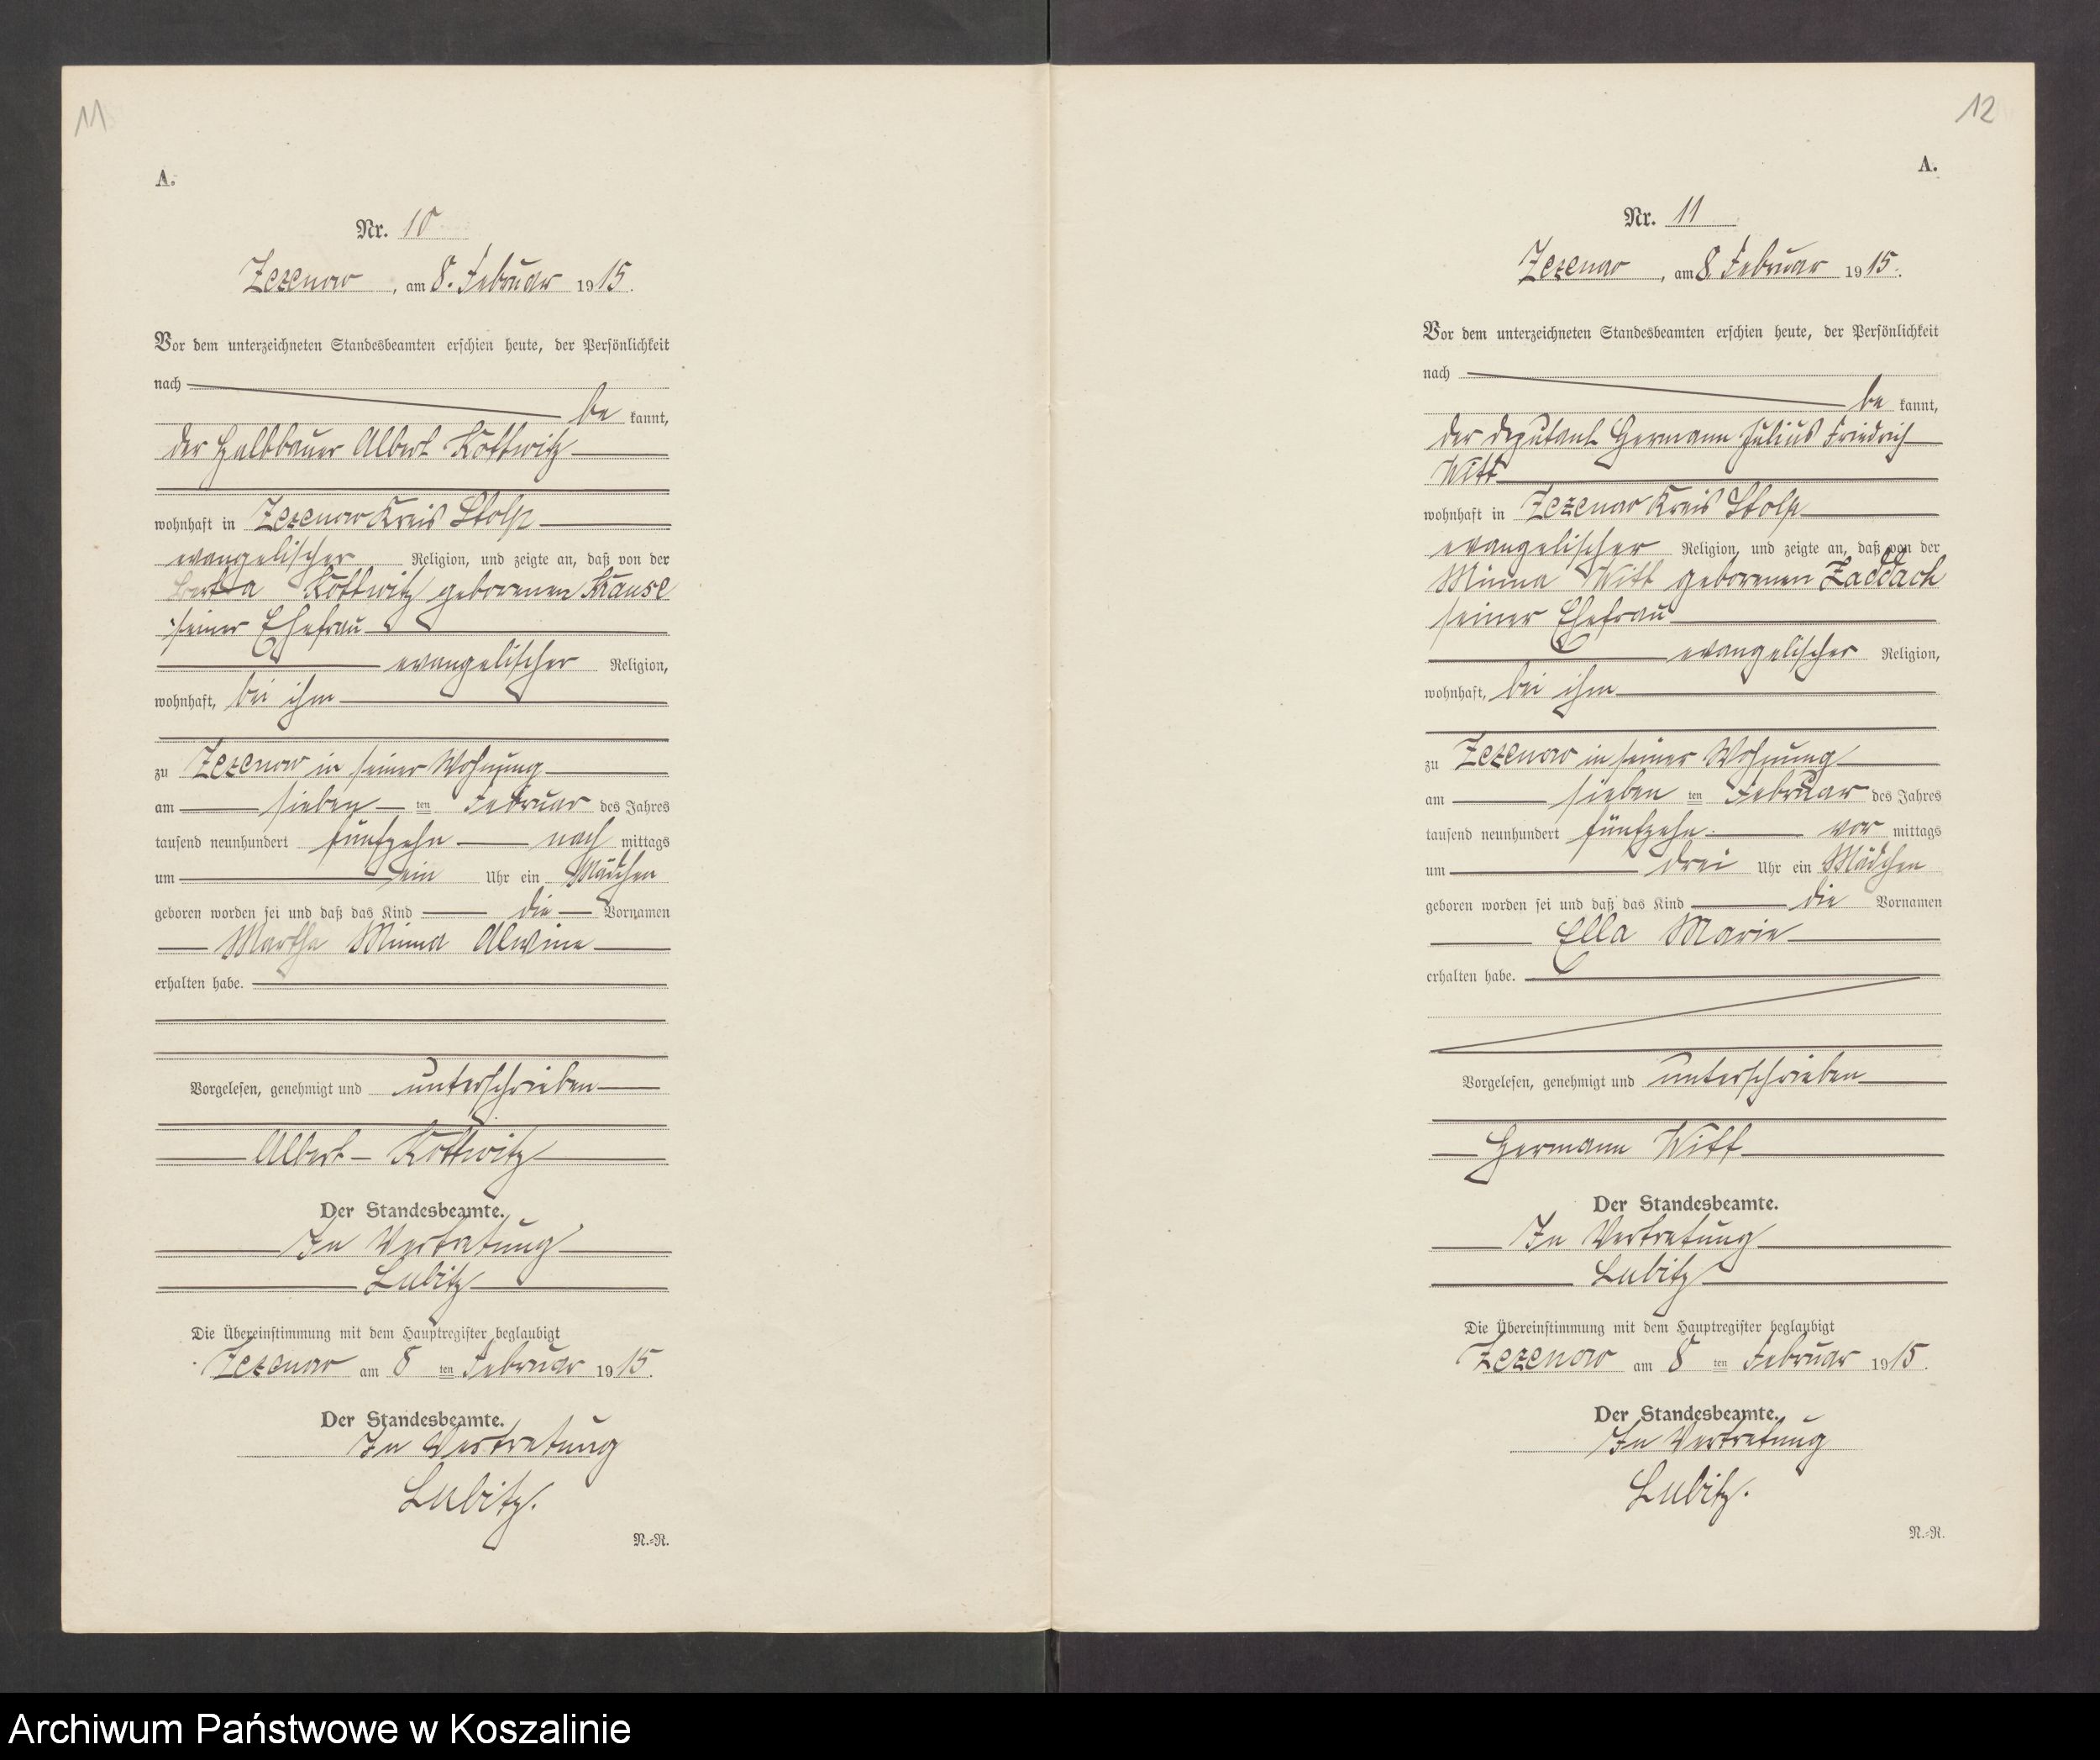 11
A.
Nr. 10
Zezenow, am 8. Februar 1915.
Vor dem unterzeichneten Standesbeamten erschien heute, der Persönlichkeit
nach
be kannt,
der Halbbauer Albert Kottwitz
wohnhaft in Zezenow Kreis Stolp
evangelischer Religion, und zeigte an, daß von der
Kottwitz geborenen Krause
seiner Ehefrau
evangelischer Religion,
wohnhaft, bei ihm
zu Zezenow in seiner Wohnung
am sieben ten Februar des Jahres
tausend neunhundert fünfzehn nach mittags
um ein Uhr ein Mädchen
geboren worden sei und daß das Kind die Vornamen
Martha Minna Alwine
erhalten habe.
Vorgelesen, genehmigt und unterschrieben
Albert Kottwitz
Der Standesbeamte.
In Vertretung
Lubitz
Die Übereinstimmung mit dem Hauptregister beglaubigt
Zezenow am 8 ten Februar 1915.
Der Standesbeamte.
In Vertretung
Lubitz.
N.-R.
12
A.
Nr. 11
Zezenow, am 8. Februar 1915.
Vor dem unterzeichneten Standesbeamten erschien heute, der Persönlichkeit
nach
be kannt,
der Deputant Hermann Julius Friedrich
Witt
wohnhaft in Zezenow Kreis Stolp
evangelischer Religion, und zeigte an, daß von der
Minna Witt geborenen Zaddach
seiner Ehefrau
evangelischer Religion,
wohnhaft, bei ihm
zu Zezenow in seiner Wohnung
am sieben ten Februar des Jahres
tausend neunhundert fünfzehn vor mittags
um drei Uhr ein Mädchen
geboren worden sei und daß das Kind die Vornamen
Ella Marie
erhalten habe.
Vorgelesen, genehmigt und unterschrieben
Hermann Witt
Der Standesbeamte.
In Vertretung
Lubitz
Die Übereinstimmung mit dem Hauptregister beglaubigt
Zezenow am 8 ten Februar 1915.
Der Standesbeamte.
In Vertretung
Lubitz.
N.-R.
Archiwum Państwowe w Koszalinie